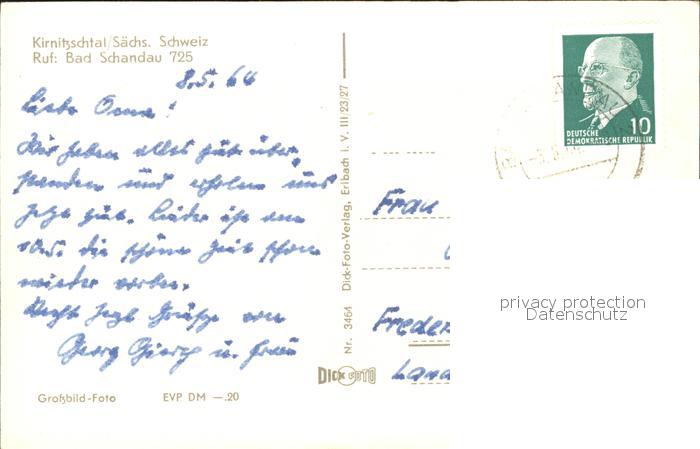 Kirnitzschtal/Sächs. Schweiz
Ruf: Bad Schandau 725
8.5.64
Liebe Oma!
Wir haben alles gut über
standen und erholen uns
jetzt gut. Leider ist am
10.5. die schöne Zeit schon
wieder vorbei.
Recht herzl. Grüße von
Georg u. Frau
Großbild-Foto EVP DM —.20
Nr. 3464 Dick-Foto-Verlag, Erlbach i. V. III/23/27
DICK FOTO
DEUTSCHE
DEMOKRATISCHE REPUBLIK 10
Frau
Freder
Land
privacy protection
Datenschutz